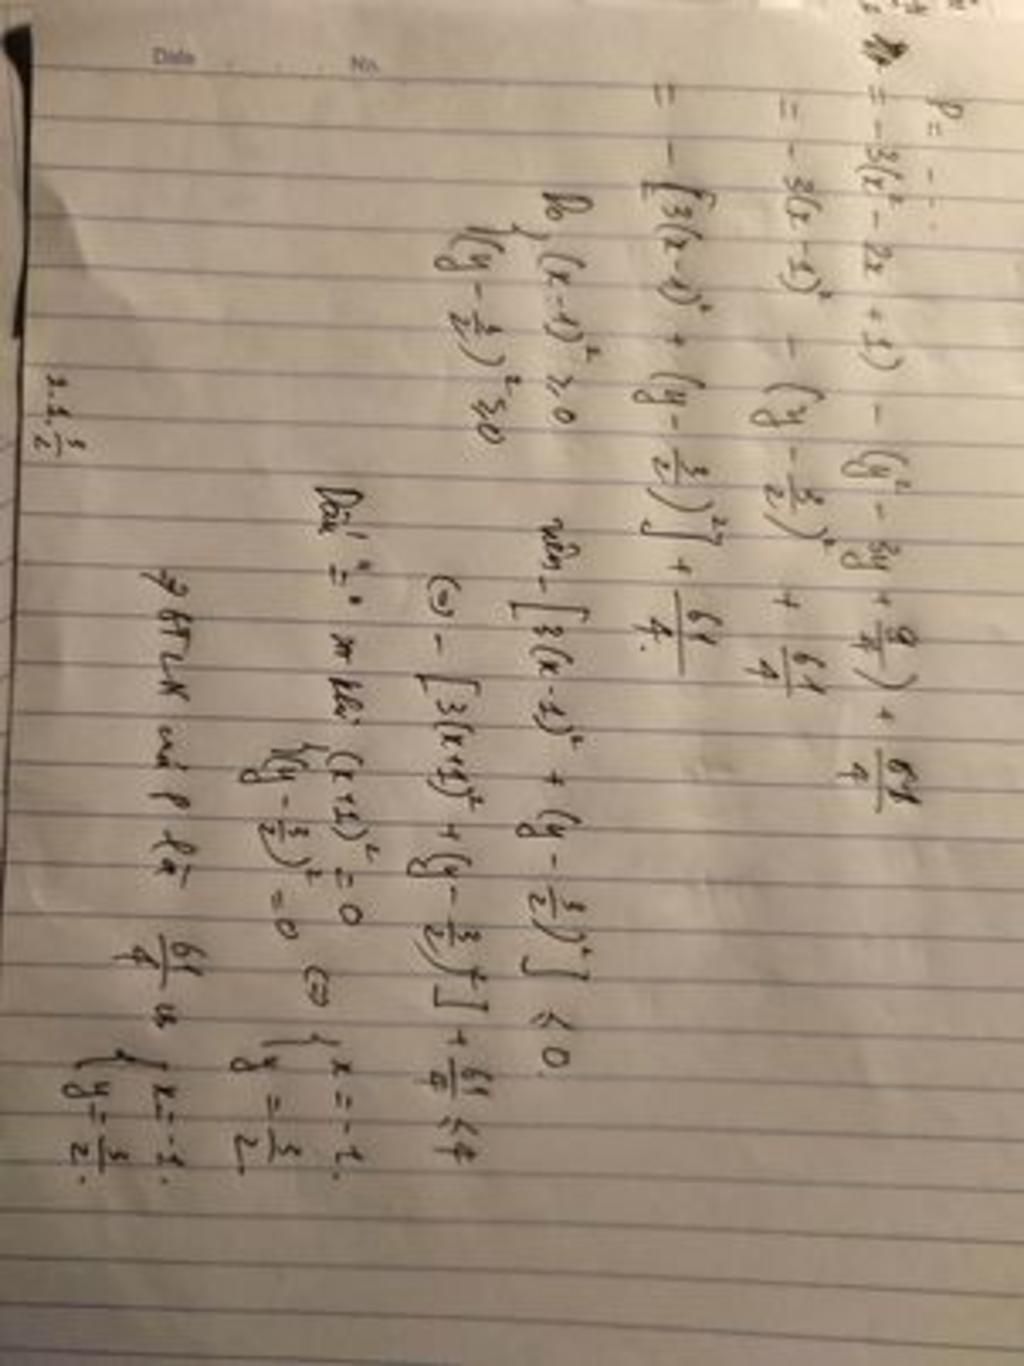 Date No.
P = - ...
= -3(x² - 2x + 1) - (y² - 3y + 9/4) + 61/4
= -3(x - 1)² - (y - 3/2)² + 61/4
= -[3(x - 1)² + (y - 3/2)²] + 61/4.
Do { (x - 1)² ≥ 0
(y - 3/2)² ≥ 0
nên -[3(x - 1)² + (y - 3/2)²] ≤ 0
(=) -[3(x+1)² + (y - 3/2)²] + 61/4 ≤ 4
Dấu "=" khi { (x+1)² = 0
(y - 3/2)² = 0 (=) { x = -1.
y = 3/2
=> GTLN P là 61/4 { x = -1.
y = 3/2.
2.1.3/2